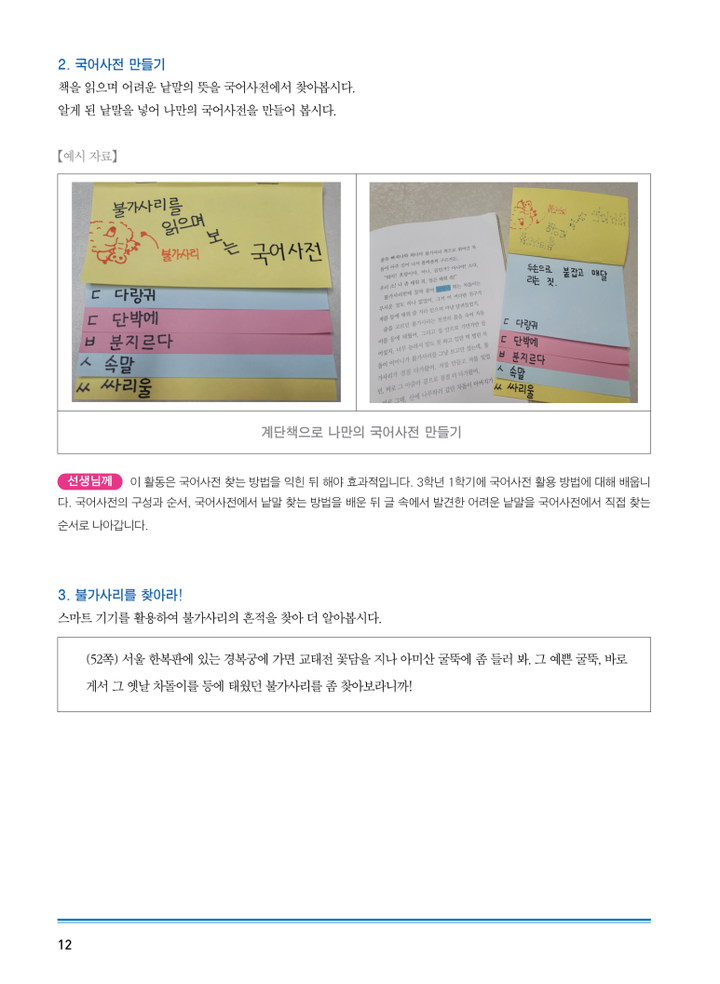 2. 국어사전 만들기
책을 읽으며 어려운 낱말의 뜻을 국어사전에서 찾아봅시다.
알게 된 낱말을 넣어 나만의 국어사전을 만들어 봅시다.
【예시 자료】
불가사리를
읽으며
보는
국어사전
불가사리
ㄷ 다랑귀
ㄷ 단박에
ㅂ 분지르다
ㅅ 속말
ㅆ 싸리울
두손으로 붙잡고 매달
리는 짓.
ㄷ 다랑귀
ㄷ 단박에
ㅂ 분지르다
ㅅ 속말
ㅆ 싸리울
계단책으로 나만의 국어사전 만들기
선생님께 이 활동은 국어사전 찾는 방법을 익힌 뒤 해야 효과적입니다. 3학년 1학기에 국어사전 활용 방법에 대해 배웁니
다. 국어사전의 구성과 순서, 국어사전에서 낱말 찾는 방법을 배운 뒤 글 속에서 발견한 어려운 낱말을 국어사전에서 직접 찾는
순서로 나아갑니다.
3. 불가사리를 찾아라!
스마트 기기를 활용하여 불가사리의 흔적을 찾아 더 알아봅시다.
(52쪽) 서울 한복판에 있는 경복궁에 가면 교태전 꽃담을 지나 아미산 굴뚝에 좀 들러 봐. 그 예쁜 굴뚝, 바로
게서 그 옛날 차돌이를 등에 태웠던 불가사리를 좀 찾아보라니까!
12